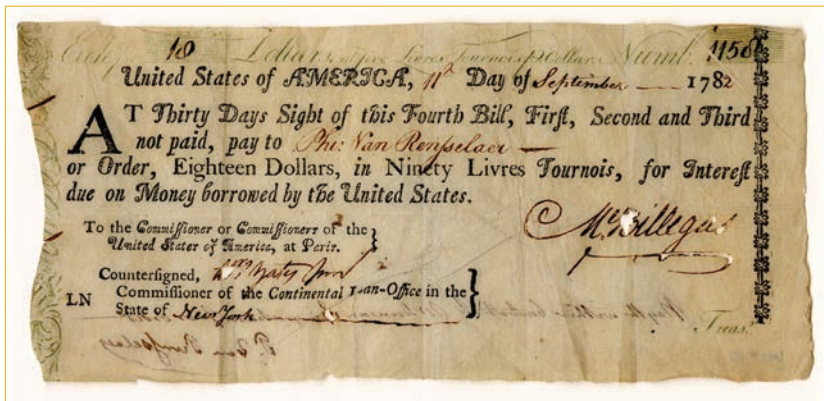 18 Dollars, in five Livres Tournois Dollar Numb. 1158
United States of AMERICA, 11th Day of September 1782
AT Thirty Days Sight of this Fourth Bill, First, Second and Third
not paid, pay to Phi: Van Rensselaer
or Order, Eighteen Dollars, in Ninety Livres Tournois, for Interest
due on Money borrowed by the United States.
To the Commissioner or Commissioners of the
United States of America, at Paris.
Countersigned,
LN Commissioner of the Continental Loan-Office in the
State of New York
Treas